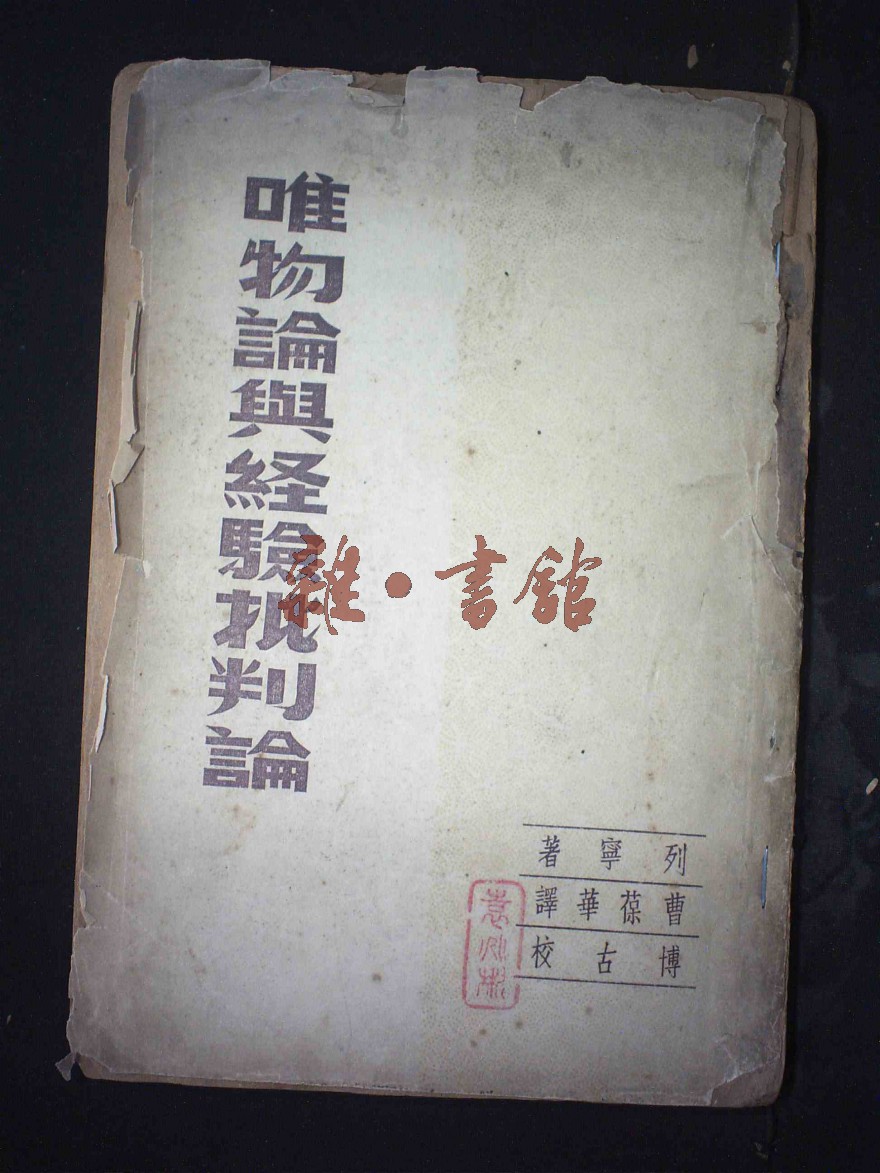 唯物論與経験批判論
雜·書館
列寧著
曹葆華譯
博古校